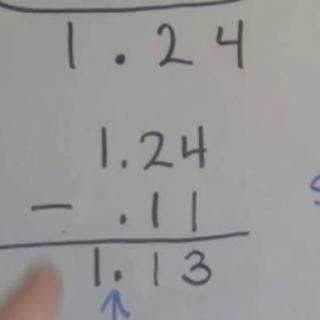 1.24
1.24
- .11
1.13